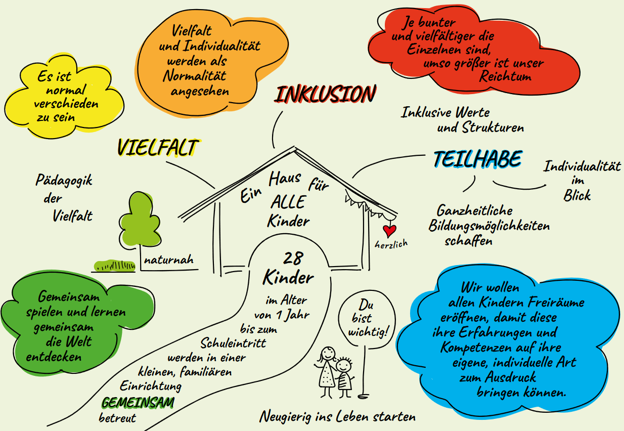 Es ist
normal
verschieden
zu sein
Vielfalt
und Individualität
werden als
Normalität
angesehen
Je bunter
und vielfältiger die
Einzelnen sind,
umso größer ist unser
Reichtum
INKLUSION
Inklusive Werte
und Strukturen
VIELFALT
TEILHABE
Individualität
im
Blick
Pädagogik
der
Vielfalt
Ein Haus für
ALLE
Kinder
Ganzheitliche
Bildungsmöglichkeiten
schaffen
herzlich
naturnah
28
Kinder
im Alter
von 1 Jahr
bis zum
Schuleintritt
werden in einer
kleinen, familiären
Einrichtung
GEMEINSAM
betreut
Gemeinsam
spielen und lernen
gemeinsam
die Welt
entdecken
Du
bist
wichtig!
Wir wollen
allen Kindern Freiräume
eröffnen, damit diese
ihre Erfahrungen und
Kompetenzen auf ihre
eigene, individuelle Art
zum Ausdruck
bringen können.
Neugierig ins Leben starten